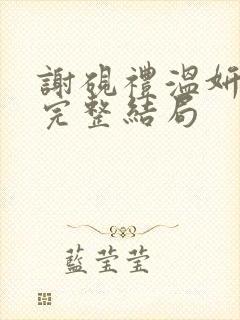 謝硯禮溫妍
完整結局
藍莹莹